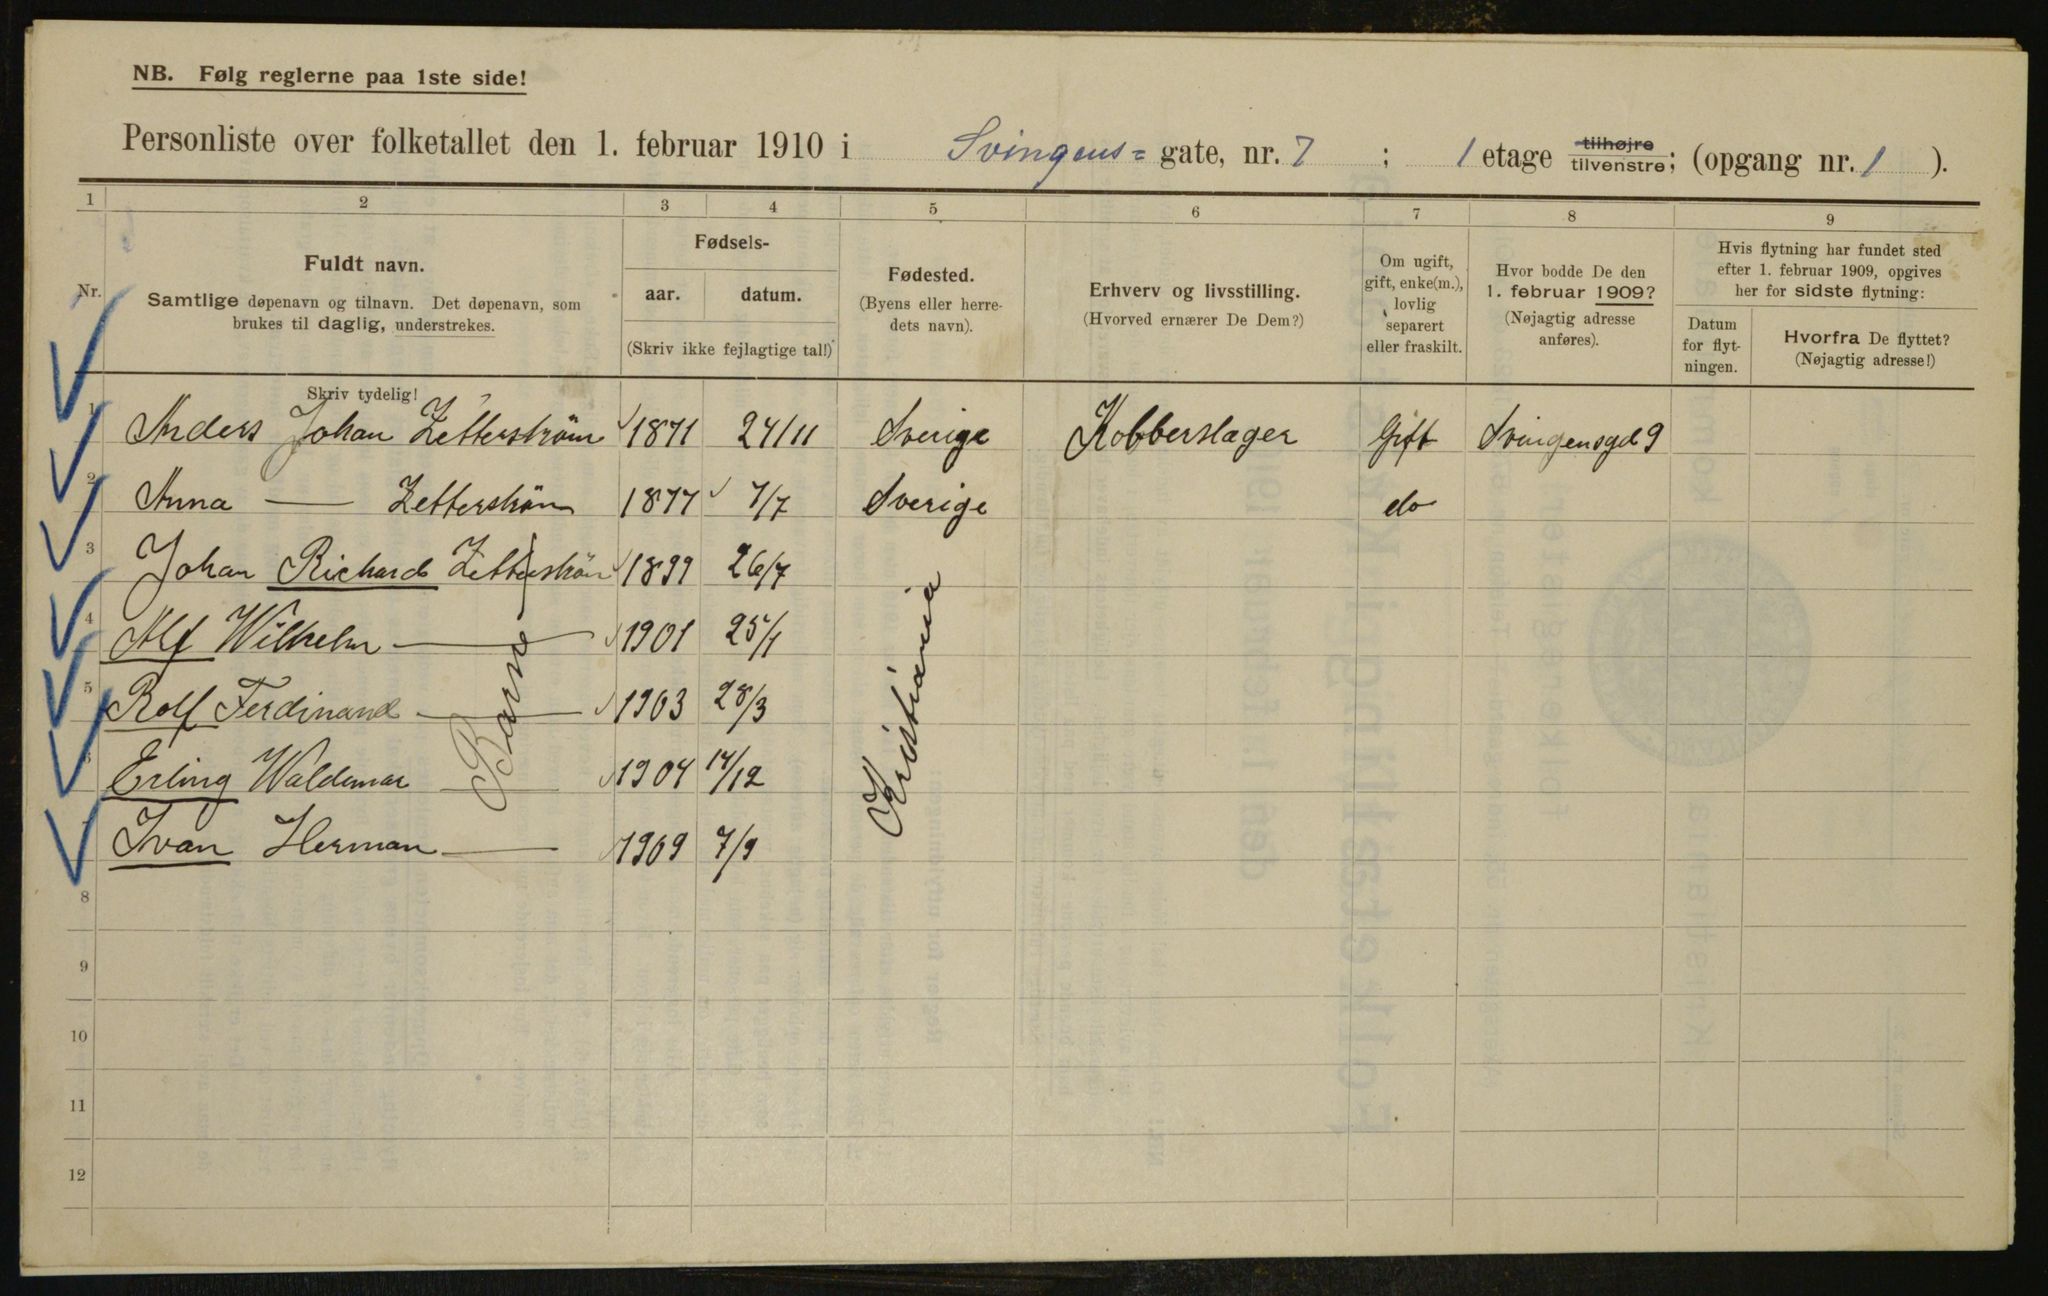 NB. Følg reglerne paa 1ste side!
Personliste over folketallet den 1. februar 1910 i Svingens= gate, nr. 7 ; 1 etage tilhøjre tilvenstre; (opgang nr. 1 ).
1 2 3 4 5 6 7 8 9
Nr.
Fuldt navn.
Samtlige døpenavn og tilnavn. Det døpenavn, som
brukes til daglig, understrekes.
Skriv tydelig!
Fødsels-
aar. datum.
(Skriv ikke fejlagtige tal!)
Fødested.
(Byens eller herre-
dets navn).
Erhverv og livsstilling.
(Hvorved ernærer De Dem?)
Om ugift,
gift, enke(m.),
lovlig
separert
eller fraskilt.
Hvor bodde De den
1. februar 1909?
(Nøjagtig adresse
anføres).
Hvis flytning har fundet sted
efter 1. februar 1909, opgives
her for sidste flytning:
Datum
for flyt-
ningen.
Hvorfra De flyttet?
(Nøjagtig adresse!)
1 Anders Johan Zetterström 1871 24/11 Sverige Kobberslager Gift Svingensgd 9
2 Anna — Zetterström 1877 7/7 Sverige do
3 Johan Richard Zetterström 1899 26/7
4 Alf Wilhelm — 1901 25/1
5 Rolf Ferdinand — 1903 28/3
6 Erling Waldemar — 1904 14/12
7 Ivan Herman — 1909 7/9
Barn
Kristiania
8
9
10
11
12